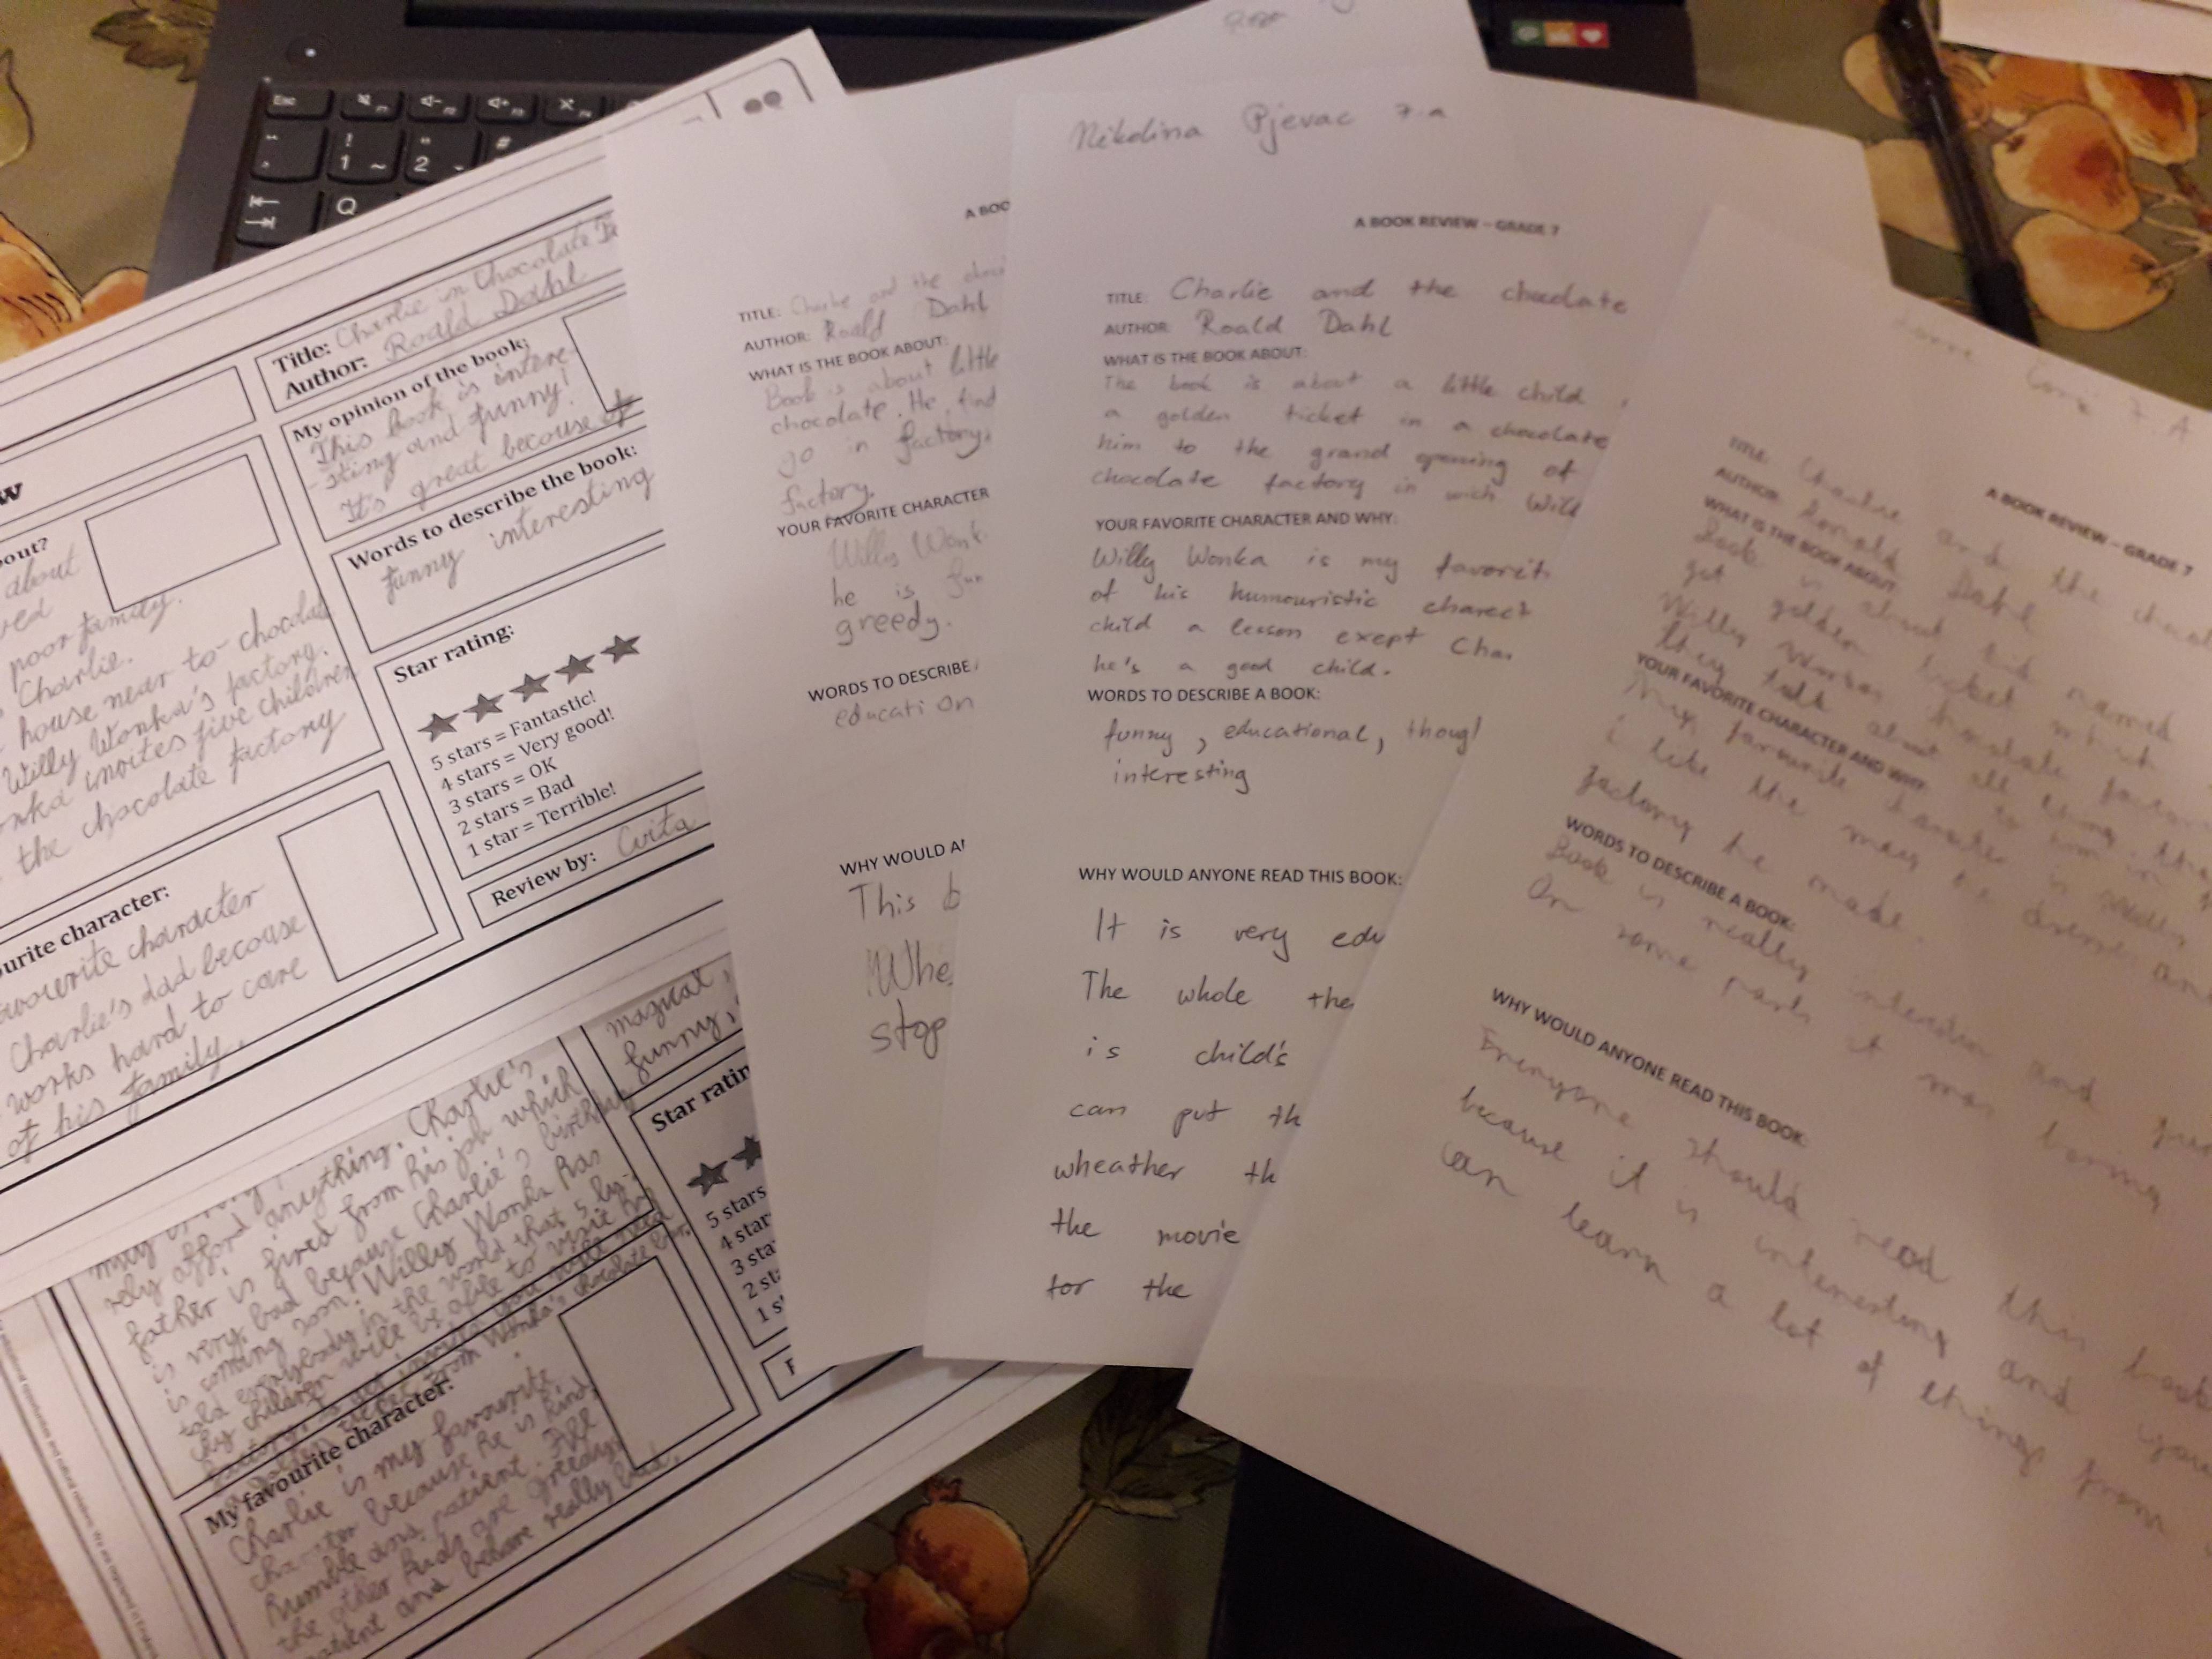 Esc
! 1 ~
" 2
#
Q
w
out?
about
poor family.
Charlie.
house near to chocolate
Willy Wonka's factory.
invites five children
the chocolate factory
urite character:
favourite character
Charlie's dad becouse
works hard to care
of his family.
Title: Charlie in Chocolate
Author: Roald Dahl
My opinion of the book:
This book is intere-
sting and funny!
It's great becouse of
Words to describe the book:
funny interesting
Star rating:
5 stars = Fantastic!
4 stars = Very good!
3 stars = OK
2 stars = Bad
1 star = Terrible!
Review by: Cvita
afford anything. Charlie's
father is fired from his job which
is very bad because Charlie's birthday
is coming soon. Willy Wonka has
everybody in the world that 5
children will be able to visit his
from Wonka's chocolate bar.
My favourite character:
Charlie is my favourite
because he is kind,
humble and patient. All
the other kids are greedy,
and behave really bad.
magical,
funny,
Star ratin
5 stars
4 star
3 sta
2 st
1 s
A BOO
TITLE: Charlie and the choc
AUTHOR: Roald Dahl
WHAT IS THE BOOK ABOUT:
Book is about little
chocolate. He find
go in factory.
factory.
YOUR FAVORITE CHARACTER
Willy Wonk
he is fun
greedy.
WORDS TO DESCRIBE
education
WHY WOULD A
This b
Whe
stop
Nikolina Pjevac 7.a
A BOOK REVIEW – GRADE 7
TITLE: Charlie and the chocolate
AUTHOR: Roald Dahl
WHAT IS THE BOOK ABOUT:
The book is about a little child
a golden ticket in a chocolate
him to the grand opening of
chocolate factory in wich Will
YOUR FAVORITE CHARACTER AND WHY:
Willy Wonka is my favorit
of his humouristic charect
child a lesson exept Char
he's a good child.
WORDS TO DESCRIBE A BOOK:
funny, educational, though
interesting
WHY WOULD ANYONE READ THIS BOOK:
It is very edu
The whole the
is child's
can put th
wheather th
the movie
for the
7. A
A BOOK REVIEW – GRADE 7
TITLE: Charlie and the choco
AUTHOR: Ronald Dahl
WHAT IS THE BOOK ABOUT:
Book is about kid named
got golden ticket which
Willy Wonkas chocolate factory
they talk about all thing
YOUR FAVORITE CHARACTER AND WHY:
My favourite character is Willy
i like the way he dresses and
factory he made.
WORDS TO DESCRIBE A BOOK:
Book is really interesten and
On some parts it was boring
WHY WOULD ANYONE READ THIS BOOK:
Everyone should read this book
because it is interesting and you
can learn a lot of things from